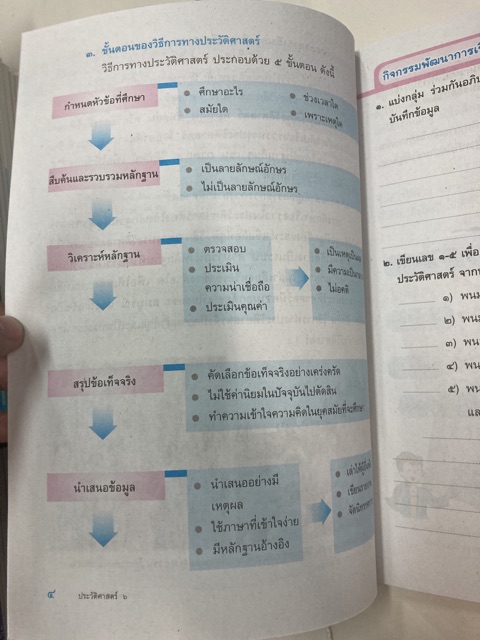 ๓. ขั้นตอนของวิธีการทางประวัติศาสตร์
วิธีการทางประวัติศาสตร์ ประกอบด้วย ๕ ขั้นตอน ดังนี้
กำหนดหัวข้อที่ศึกษา
• ศึกษาอะไร
• ช่วงเวลาใด
• สมัยใด
• เพราะเหตุใด
สืบค้นและรวบรวมหลักฐาน
• เป็นลายลักษณ์อักษร
• ไม่เป็นลายลักษณ์อักษร
วิเคราะห์หลักฐาน
• ตรวจสอบ
• ประเมิน
ความน่าเชื่อถือ
• ประเมินคุณค่า
• เป็นเหตุเป็น
• มีความเป็น
• ไม่อคติ
สรุปข้อเท็จจริง
• คัดเลือกข้อเท็จจริงอย่างเคร่งครัด
• ไม่ใช้ค่านิยมในปัจจุบันไปตัดสิน
• ทำความเข้าใจความคิดในยุคสมัยที่จะศึกษา
นำเสนอข้อมูล
• นำเสนออย่างมี
เหตุผล
• ใช้ภาษาที่เข้าใจง่าย
• มีหลักฐานอ้างอิง
๔ ประวัติศาสตร์ ๖
กิจกรรมพัฒนาการ
๑. แบ่งกลุ่ม ร่วมกันอภิ
บันทึกข้อมูล
๒. เขียนเลข ๑-๕ เพื่อ
ประวัติศาสตร์ จาก
๑)
๒)
๓)
๔)
๕)